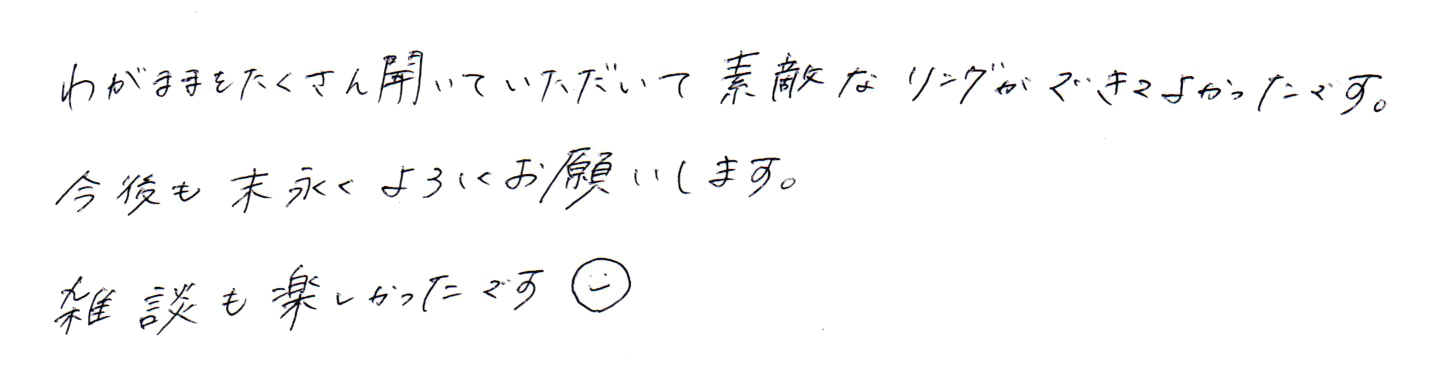 わがままをたくさん聞いていただいて素敵なリングができてよかったです。
今後も末永くよろしくお願いします。
雑談も楽しかったです